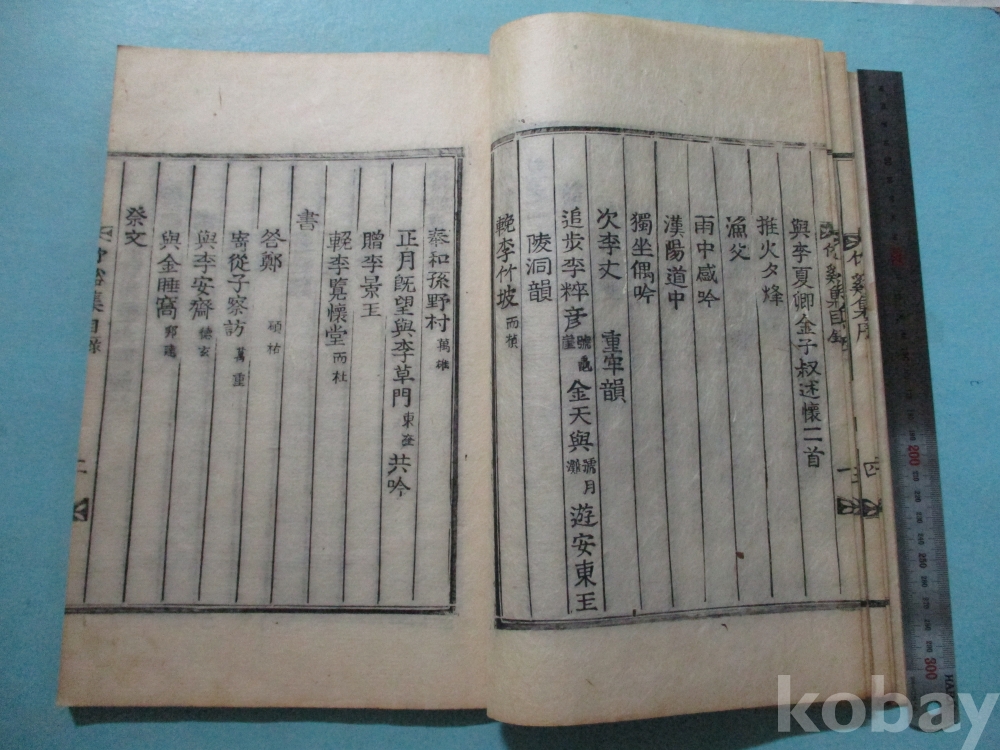 竹谿集序
竹谿集目錄
與李夏卿金子叔述懷二首
推火夕烽
漁父
雨中感吟
漢陽道中
獨坐偶吟
次李丈 重牢韻
追步李粹彦號龜巖金天與號月灘遊安東王
陵洞韻
輓李竹坡而榮
奉和孫野村萬雄
正月旣望與李草門東 共吟
贈李景玉
輓李覽懷堂而杜
書
答鄭碩祐
寄從子察訪萬重
與李安齋德玄
與金睡窩
祭文
竹谿集目錄
二
200
250
300
kobay